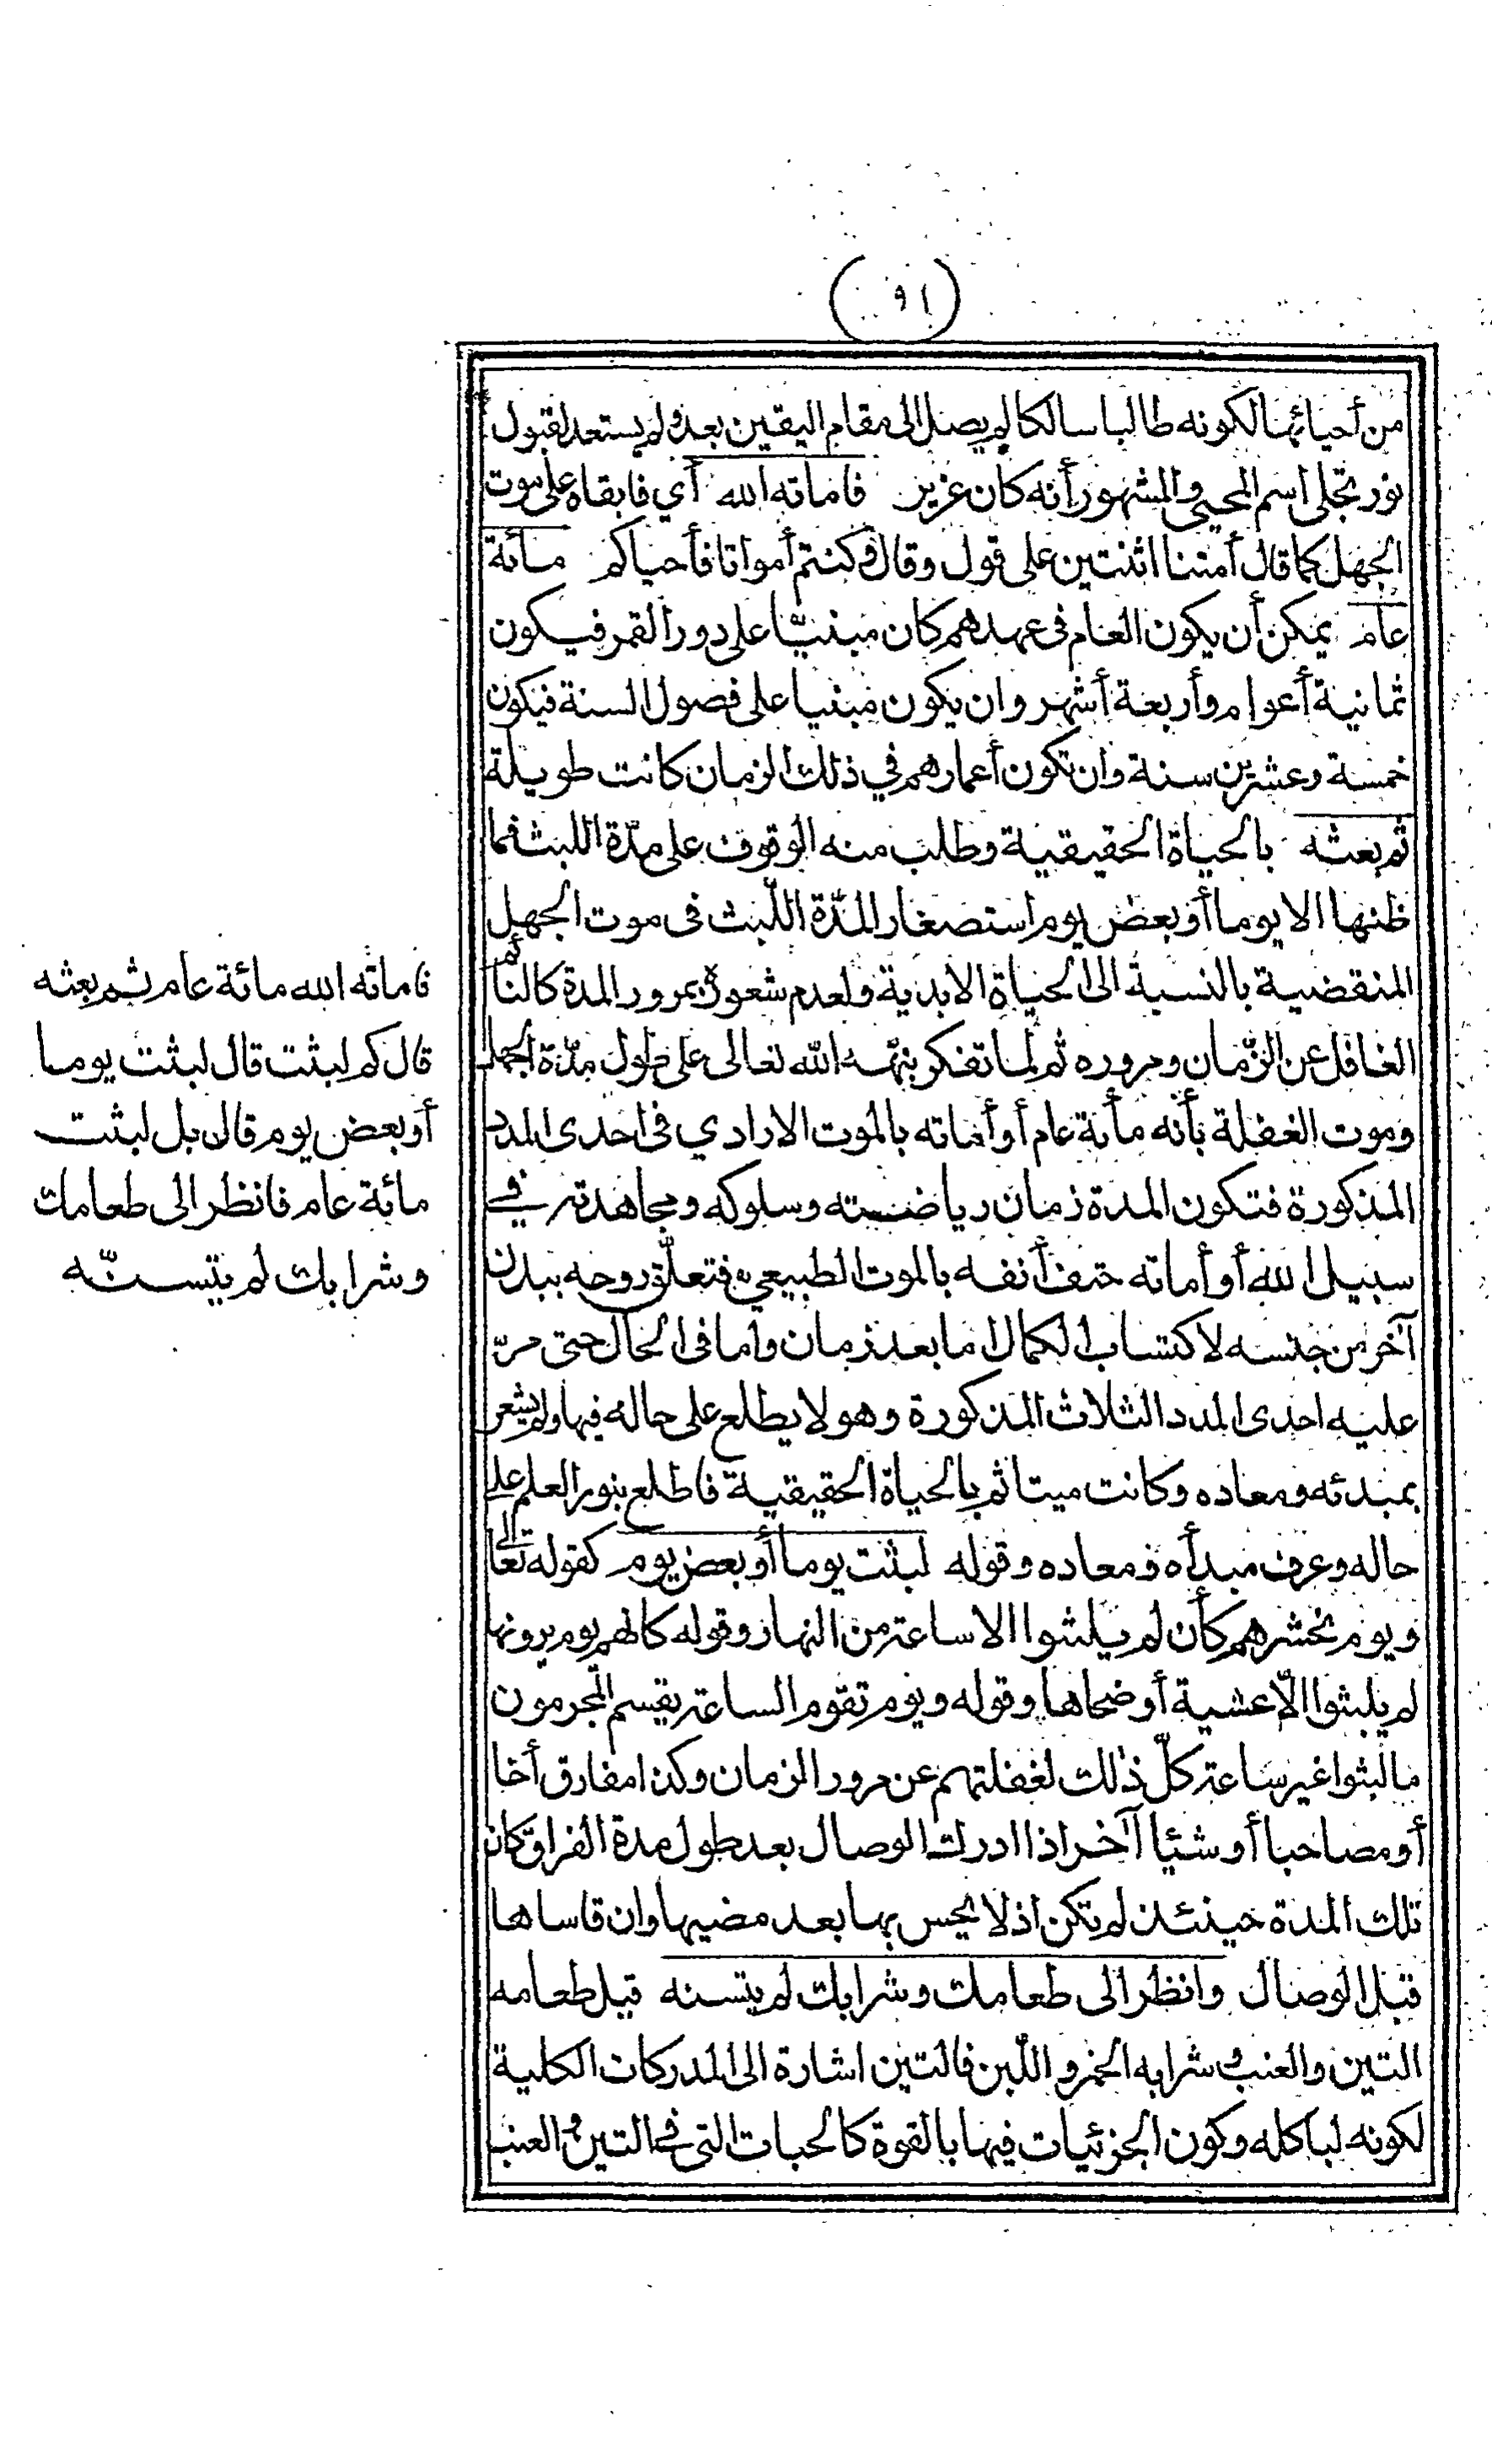 (٩١)
من أحيائها لكونه طالبا سالكا لم يصل الى مقام اليقين بعد ولم يستعد لقبول
نور تجلى اسم المحيى والمشهور أنه كان عزير فاماته الله أي فابقاه على موت
الجهل كما قال أمتنا اثنتين على قول وقال وكنتم أمواتا فأحياكم مائة
عام يمكن أن يكون العام في عهدهم كان مبنيّا على دور القمر فيكون
ثمانية أعوام وأربعة أشهر وان يكون مبنيا على فصول السنة فيكون
خمسة وعشرين سنة وان تكون أعمارهم في ذلك الزمان كانت طويلة
ثم بعثه بالحياة الحقيقية وطلب منه الوقوف على مدّة اللبث فما
ظنها الا يوما أو بعض يوم استصغار المدّة اللّبث فى موت الجهل
المنقضية بالنسبة الى الحياة الابدية ولعدم شعوره بمرور المدة كالنائم
الغافل عن الزّمان ومروره ثم لما تفكر نبّهه الله تعالى على طول مدّة الجهل
وموت الغفلة بأنه مأئة عام أو أماته بالموت الارادي فى احدى المدد
المذكورة فتكون المدة زمان رياضته وسلوكه ومجاهدته في
سبيل الله أو أماته حتف أنفه بالموت الطبيعي فتعلّق روحه ببدن
آخر من جنسه لاكتساب الكمال اما بعد زمان واما فى الحال حتى مرّ
عليه احدى المدد الثلاث المذكورة وهو لا يطلع على حاله فيها ولم يشعر
بمبدئه ومعاده وكانت ميتا ثم بالحياة الحقيقية فاطلع بنور العلم على
حاله وعرف مبدأه ومعاده وقوله لبثت يوما أو بعض يوم كقوله تعالى
ويوم نحشرهم كأن لم يلبثوا الا ساعة من النهار وقوله كانهم يوم يرونها
لم يلبثوا الّا عشية أو ضحاها وقوله ويوم تقوم الساعة يقسم المجرمون
ما لبثوا غير ساعة كلّ ذلك لغفلتهم عن مرور الزمان وكذا مفارق أخا
أو مصاحبا أو شئيا آخر اذا ادرك الوصال بعد طول مدة الفراق كان
تلك المدة حينئذ لم تكن اذ لا يحس بها بعد مضيها وان قاساها
قبل الوصال وانظر الى طعامك وشرابك لم يتسنه قيل طعامه
التين والعنب وشرابه الخمر واللّبن فالتين اشارة الى المدركات الكلية
لكونه لبا كله وكون الجزئيات فيها بالقوة كالحبات التى في التين والعنب
فاماته الله مائة عام ثم بعثه
قال كم لبثت قال لبثت يوما
أو بعض يوم قال بل لبثت
مائة عام فانظر الى طعامك
وشرابك لم يتسنّه